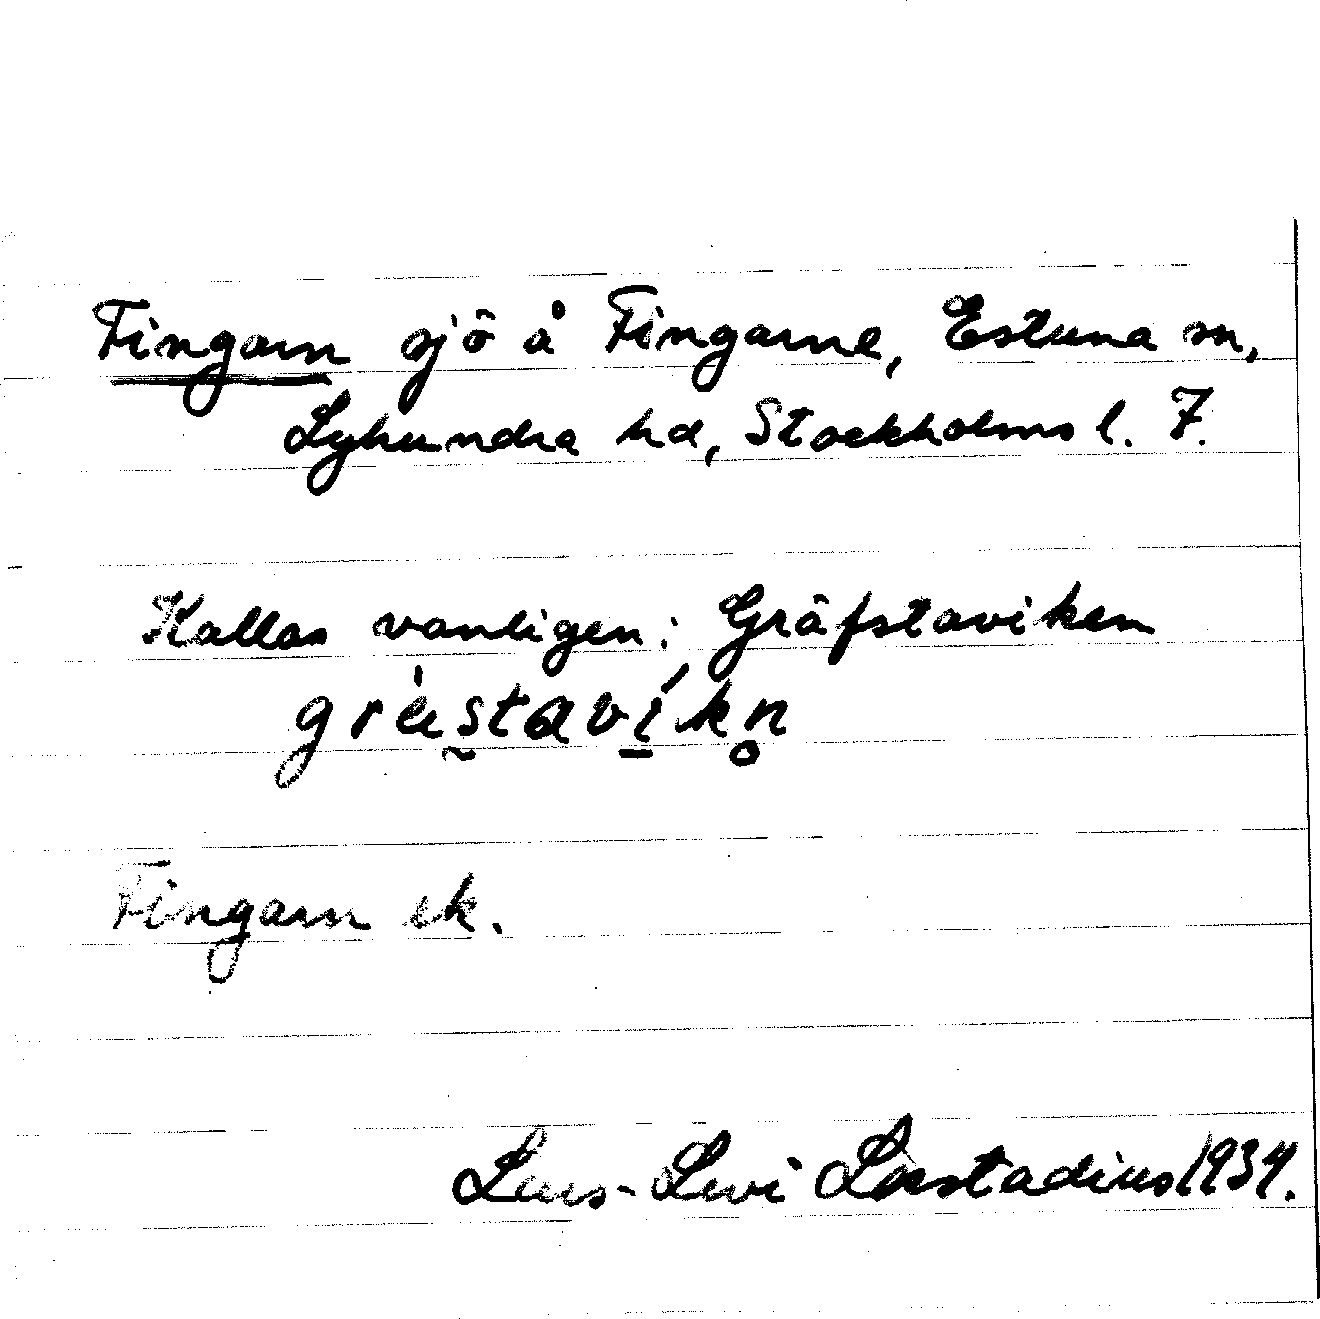 Fingarn sjö å Fingarne, Estuna sn,
Lyhundra hd, Stockholms l. 7.
Kallas vanligen: Gräfstaviken
grä̀stavíkn̥
Fingarn ek.
Lars-Levi Læstadius 1934.